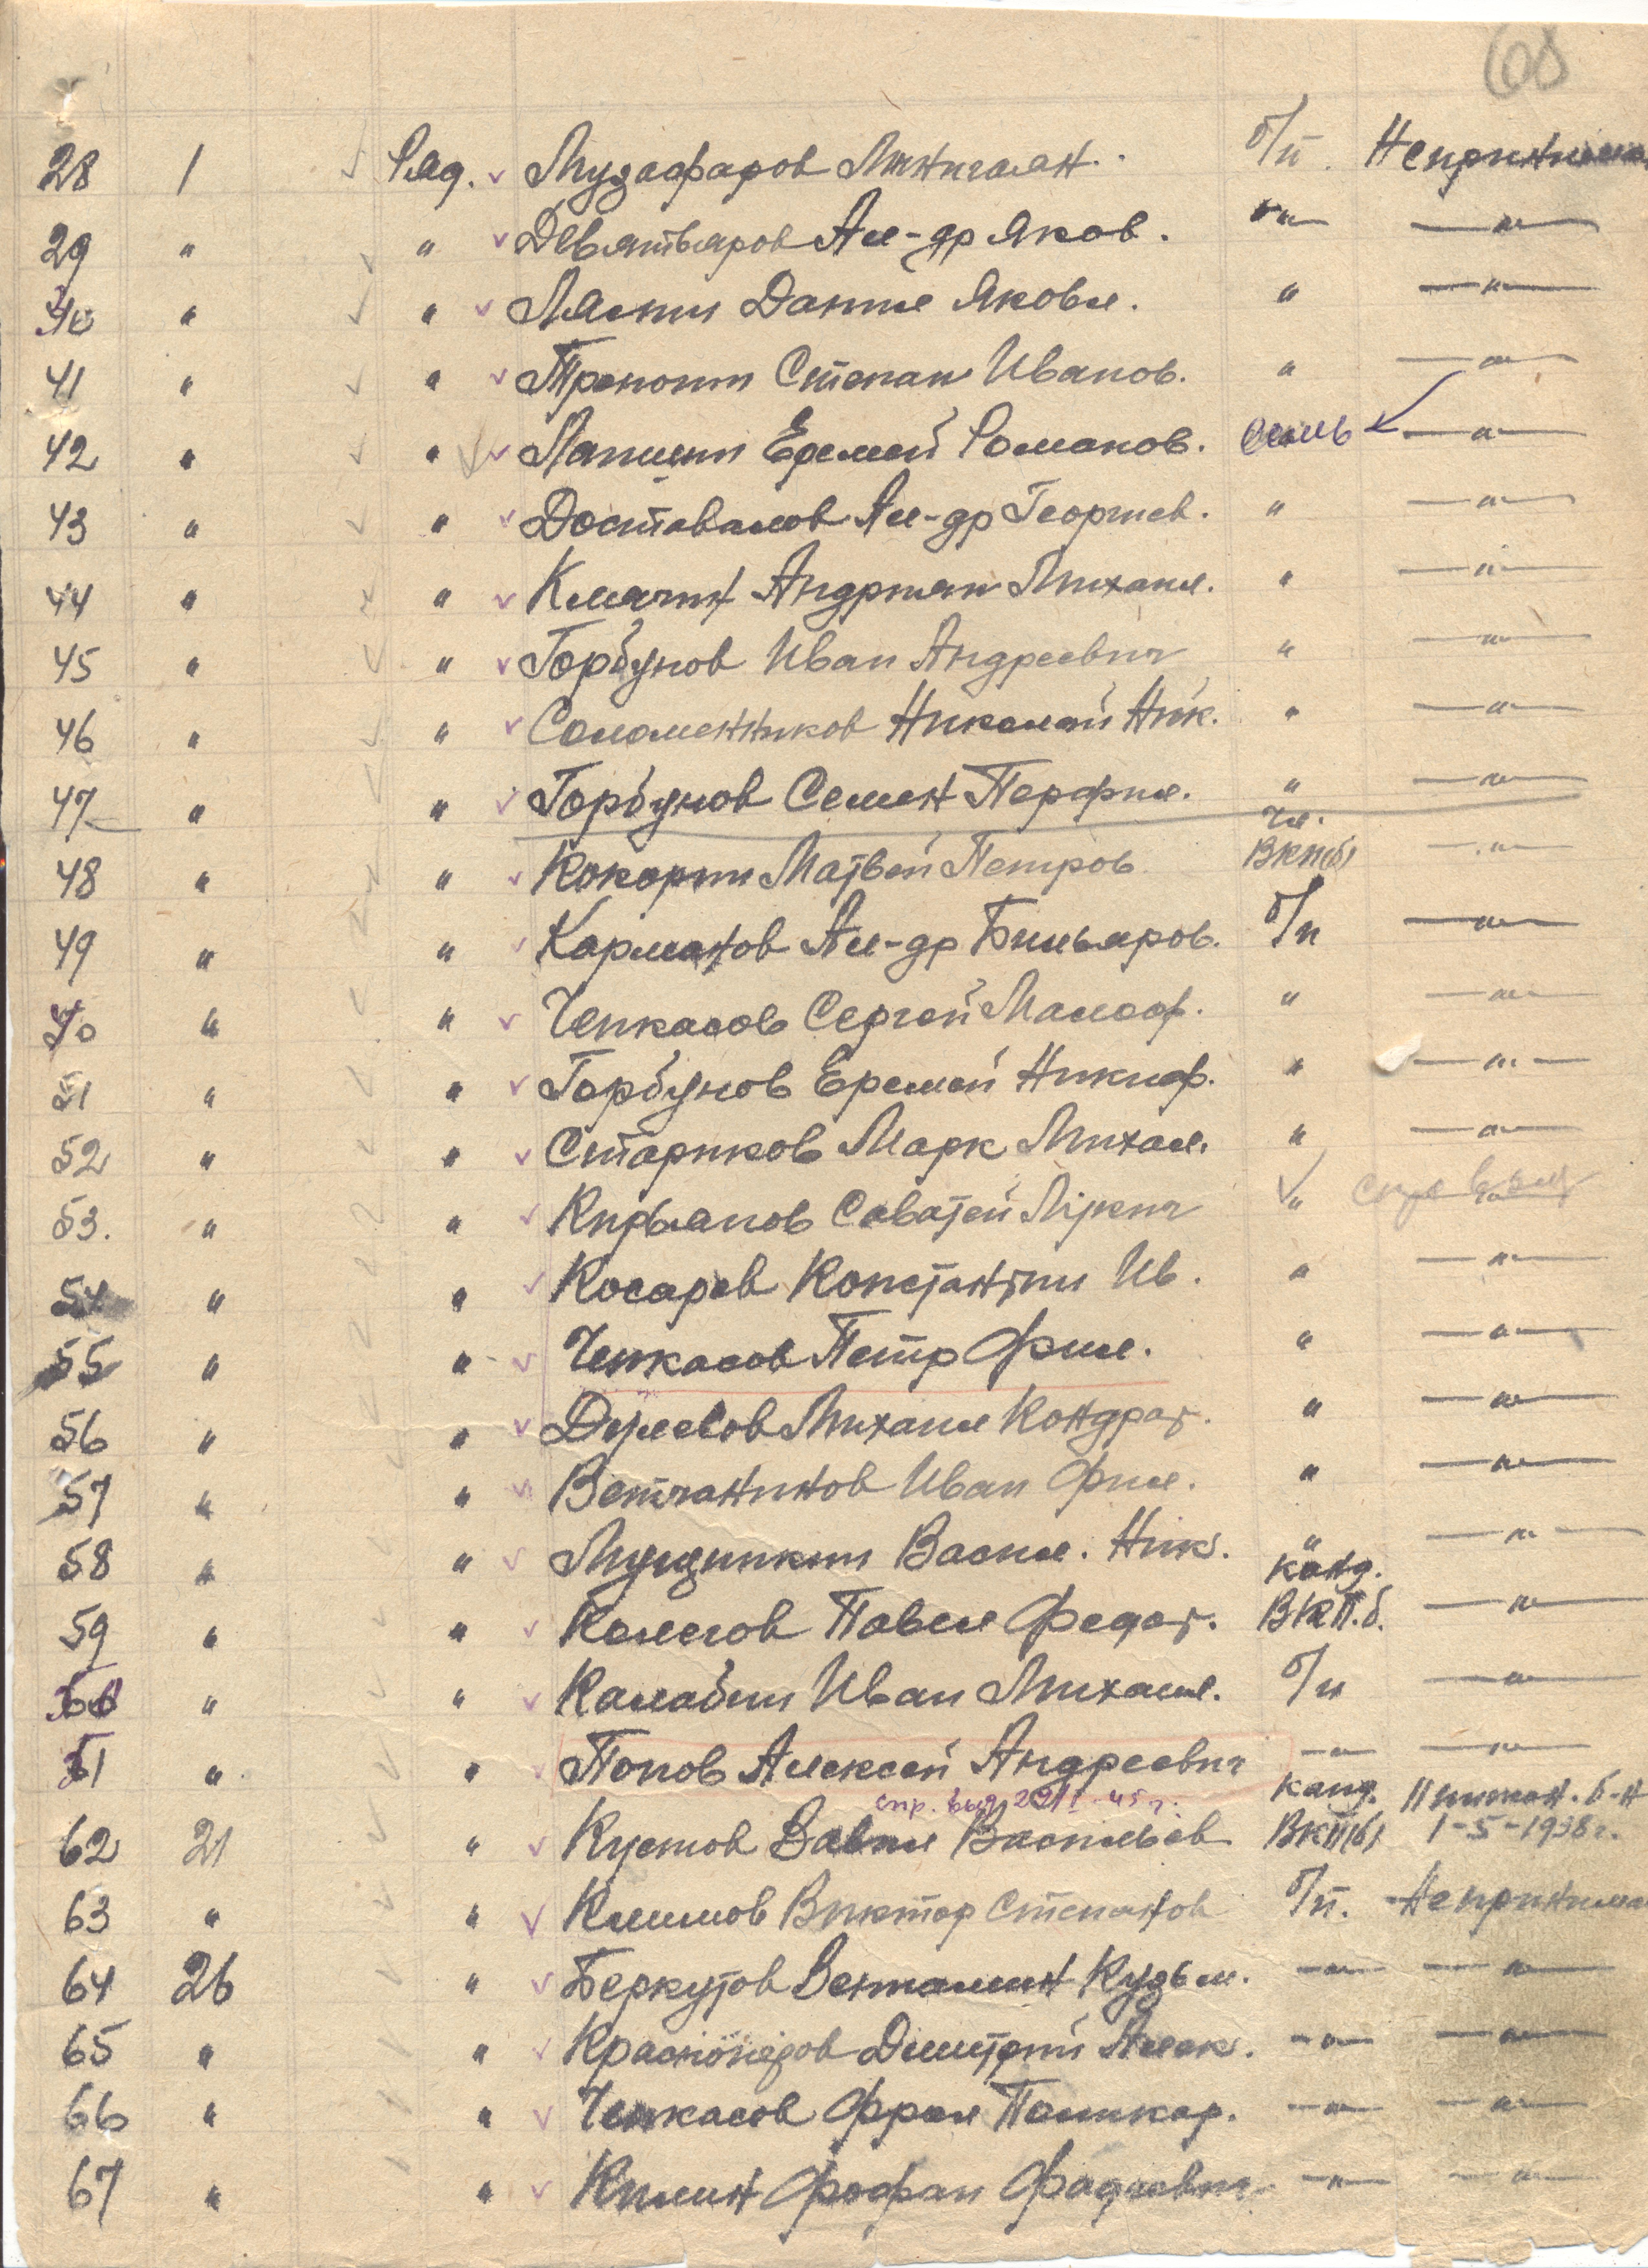 68
28 1 Ряд. Музафаров Минигаян б/п. Неприним
29 " " Девятьяров Ал-др Яков. " "
40 " " Лялин Данил Яковл. " "
41 " " Степан Иванов. " "
42 " " Лапшин Еремей Романов. "
43 " " Доставалов Ал-др Георгиев. " "
44 " " Клячин Андриян Михаил. " "
45 " " Горбунов Иван Андреевич " "
46 " " Соломенников Николай Ник. " "
47 " " Горбунов Семен Перфил. " "
чл.
48 " " Кокорин Матвей Петров ВКП(б) "
49 " " Карманов Ал-др Бильяров. б/п "
50 " " Чепкасов Сергей Малоф. " "
51 " " Горбунов Еремей Никиф. " "
52 " " Стариков Марк Михал. " "
53. " " Кирьянов Саватей "
54 " " Косарев Константин Ив. " "
55 " " Чепкасов Петр Фил. " "
56 " " Михаил Кондрат. " "
57 " " Ветчанинов Иван Фил. " "
58 " " Мущинкин Васил. Ник. " "
канд.
59 " " Колегов Павел Федот. ВКП.б. "
60 " " Калабин Иван Михаил. б/п "
61 " " Попов Алексей Андреевич " "
спр. выд. 45 г. канд. б-н
62 21 " Кустов Вавил Васильев ВКП(б) 1-5-1938 г.
63 " " Климов Виктор Степанов б/п. Неприним
64 26 " Беркутов Вениамин Кузьм. " "
65 " " Красноперов Дмитрий Алек. " "
66 " " Чепкасов Фрол Поликар. " "
67 " " Килин Фофан Фадеевич " "